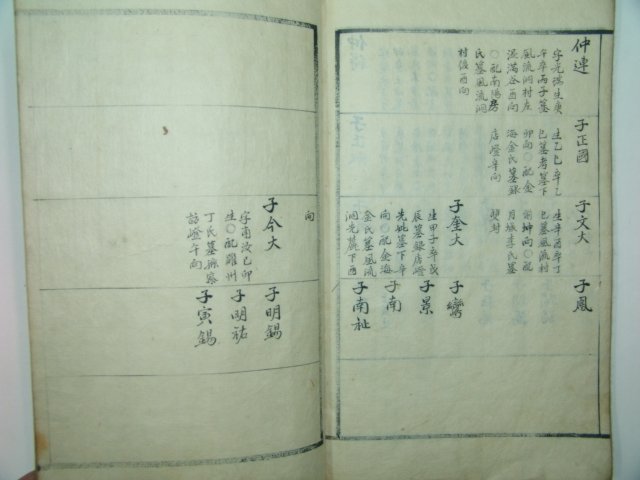 仲連
字元瑞生庚
午卒丙子墓
風流洞村左
混滿谷酉向
○配南陽房
氏墓風流洞
村後酉向
子正國
生乙巳卒乙
巳墓考墓下
卯向○配金
海金氏墓錄
店嶝卒向
子文大
生辛酉卒丁
巳墓風流村
前坤向○配
月城李氏墓
雙封
子奎大
生甲子卒戌
辰墓錄店嶝
先妣墓下辛
向○配金海
金氏墓風流
洞先麓下酉
向
子今大
字甫汝己卯
生○配羅州
丁氏墓
嶝午向
子鳳
子鸞
子景
子南
子南祉
子明錫
子明祐
子寅錫